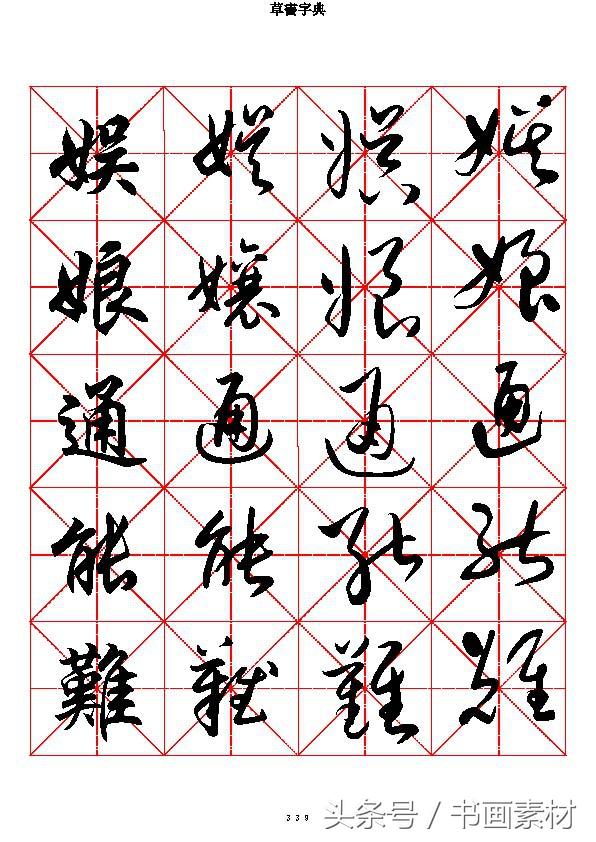 草書字典
娱 娱 娱 娱
娘 孃 娘 娘
通 通 通 通
能 能 能 能
難 難 難 難
339
头条号 / 书画素材